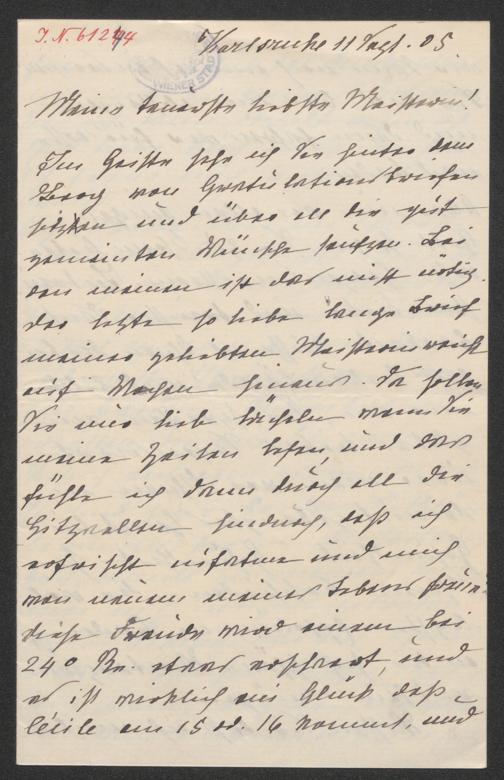 J.N. 61244
WIENER STAD
Karlsruhe 11 Sept. 05
Meine teuerste liebste Meisterin!
Im Geiste sehe ich Sie hinter dem
Berg von Gratulationsbriefen
sitzen und über all die gut
gemeinten Wünsche seufzen. Bei
den meinen ist das nicht nötig.
der letzte so liebe lange Brief
meiner geliebten Meisterin reicht
auf Wochen hinaus. Da sollen
Sie nur lieb lächeln wenn Sie
meine Zeilen lesen, und das
fühle ich dann durch all die
Hitzwellen hindurch, daß ich
erfrischt aufatme und mich
von neuem meines Lebens freue.
diese Freude wird einem bei
24° Rr. etwas erschwert, und
es ist wirklich ein Glück daß
Cécile am 15 od. 16 kommt, und